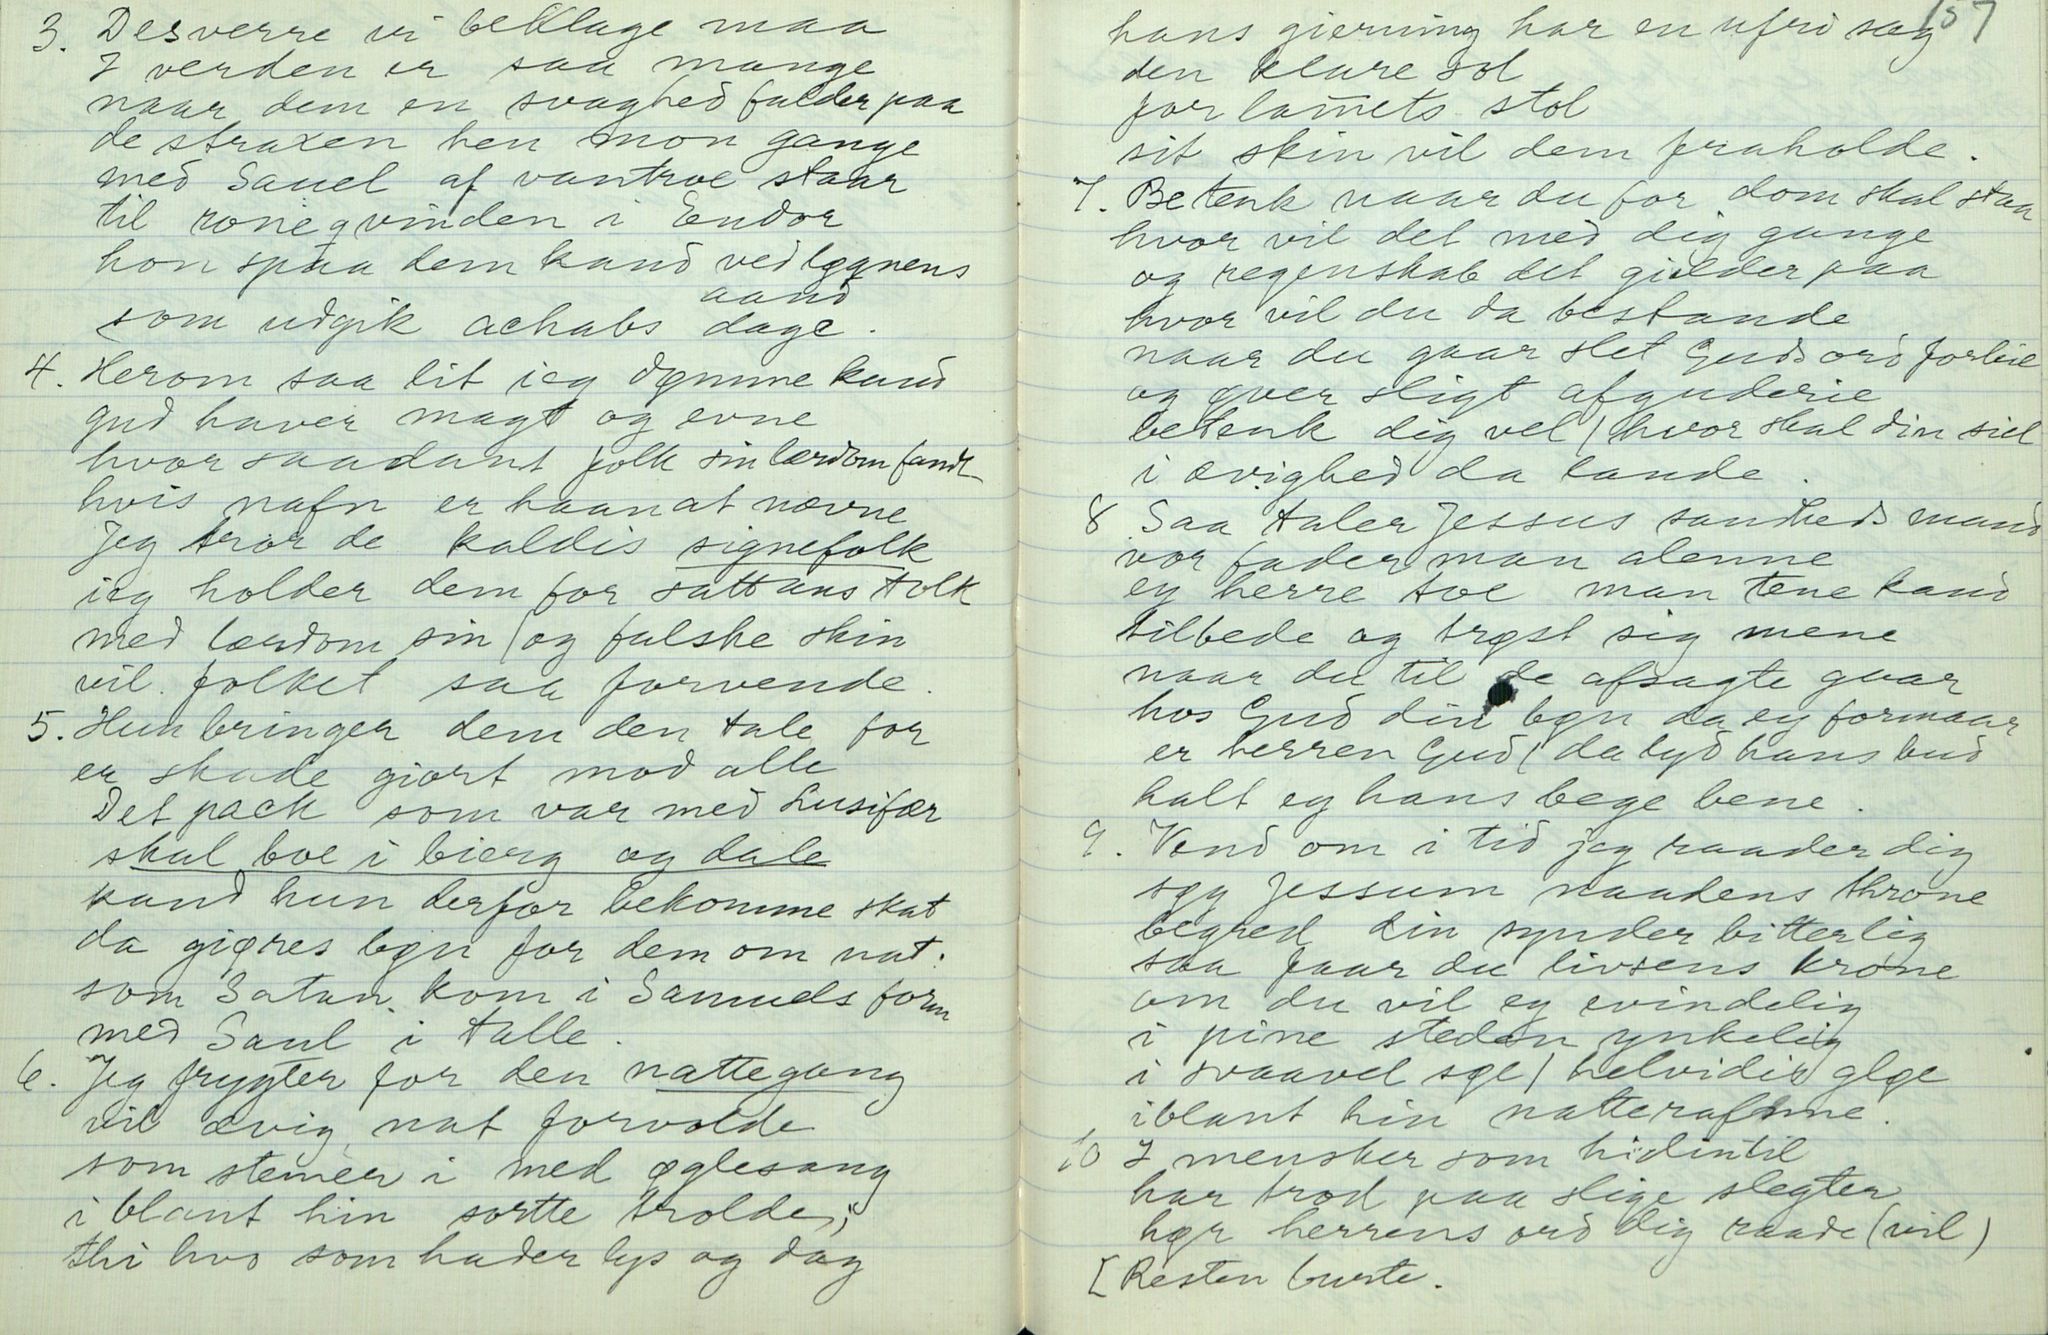 3. Desverre vi beklage maa
I verden er saa mange
naar dem en svaghed falder paa
de straxen hen mon gange
med Sauel af vantroe staar
til ronegvinden i Eendor
hon spaa dem kand ved løgnens
aand
som udgik achabs dage.
4. Herom saa lit ieg dømme kand
gud haver magt og evne
hvor saadant folk sin lærdom fandt
hvis nafn er haan at nævne
Jeg tror de kaldis signefolk
ieg holder dem for sattans tolk
med lærdom sin / og falske skin
vil folket saa forvende.
5. Hun bringer dem den tale for
er skade giort mod alle
Det pack som var med Lusifær
skal boe i bierg og dale
kand hun derfor bekomme skat
da giøres bøn for dem om nat.
som Satan kom i Samuels form
med Saul i talle.
6. Jeg frygter for den nattegang
vil ævig nat forvolde
som stemer i med øglesang
i blant hin sortte trolde;
thi hvo som hader lys og dag
157
hans gierning har en ufri sag
den klare sol
for lam̄ets stol
sit skin vil dem fraholde.
7. Betenk naar du for dom skal staa
hvor vil det med dig gange
og regenskab det gielder paa
hvor vil du da bestande
naar du gaar slet Guds ord forbie
og øver sligt afguderie
betenk dig vel / hvor skal din siel
i ævighed da lande.
8 Saa taler Jessus sandheds mand
vor fader man alenne
ey herre toe man tene kand
tilbede og trøst sig mene
naar du til de afsagte gaar
hos Gud din bøn da ey formaar
er herren Gud / da lyd hans bud
halt ey hans bege bene.
9. Vend om i tid jeg raader dig
søg Jessum naadens throne
begred din synder bitterlig
saa faar du livsens krone
om du vil ey evindelig
i pine steden ynkelig
i svaavel søe / helvidis gløe
iblant hin natterafnne.
10 I mensker som hidintil
har trod paa slige slegter
hør herrens ord dig raade (vil)
[Resten burte.